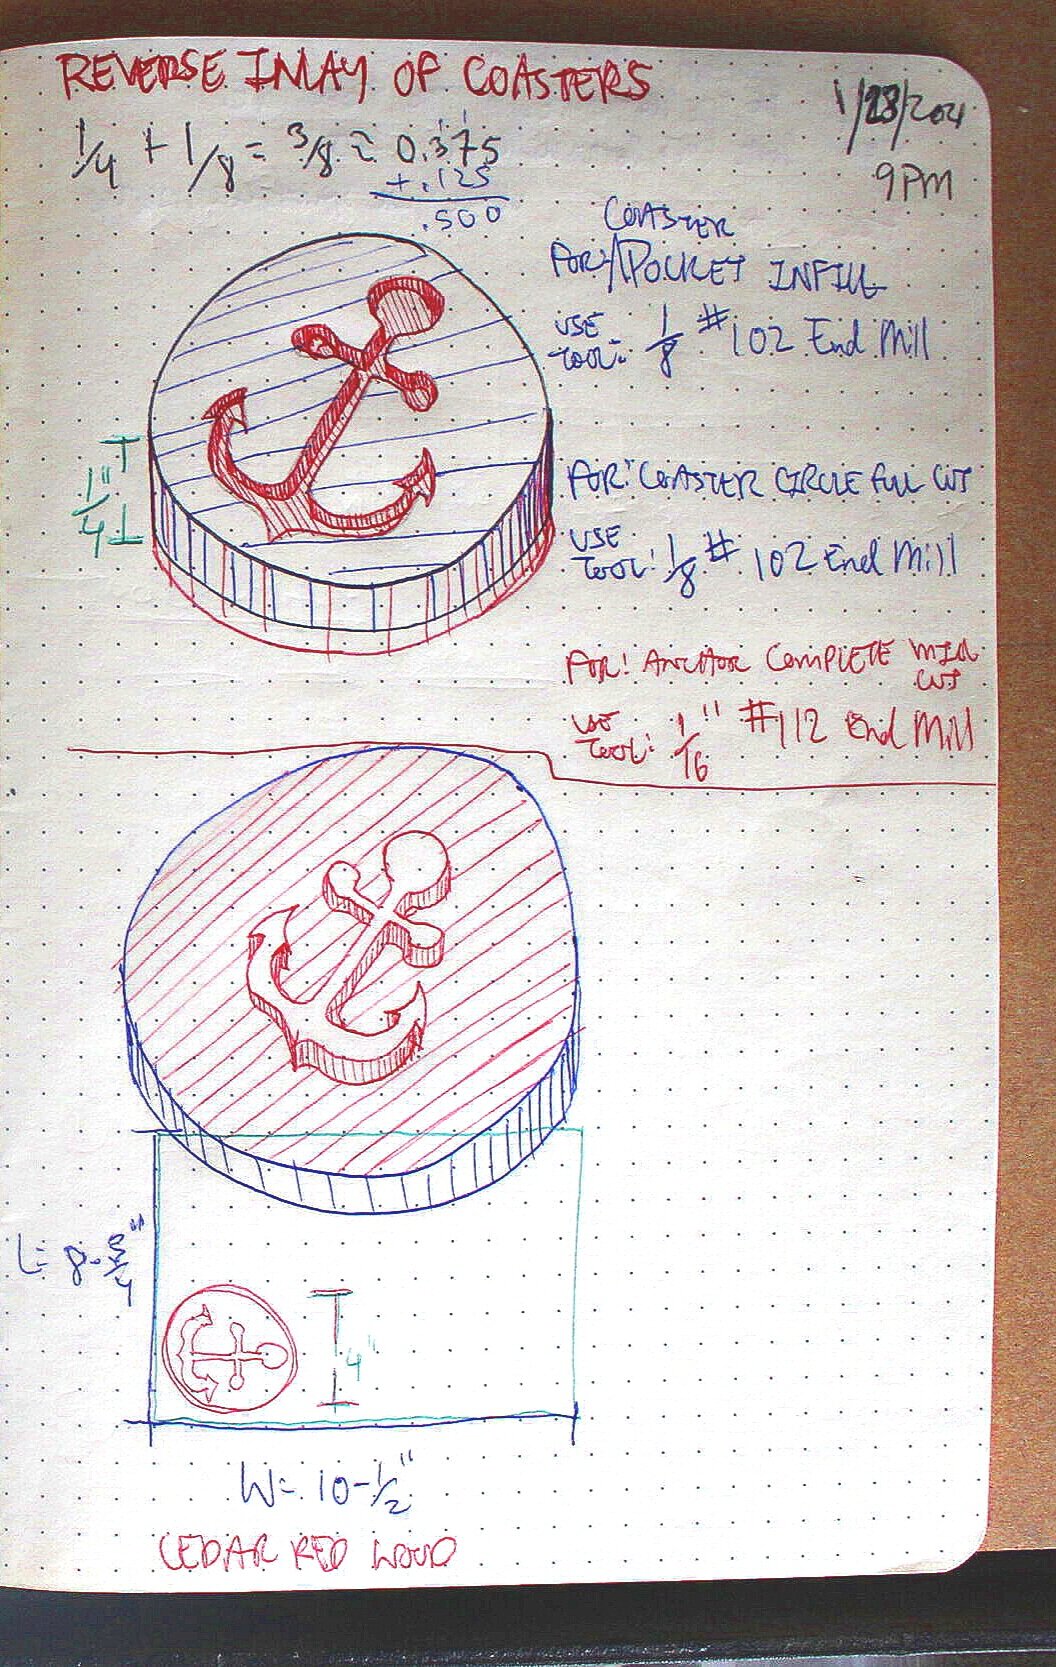 REVERSE INLAY OF COASTERS
1/28/2021
9PM
1/4 + 1/8 = 3/8 = 0.375
+.125
.500
COASTER
FOR: POCKET INFILL
USE TOOL: 1/8 #102 End Mill
1/4"
FOR: COASTER CIRCLE FULL CUT
USE TOOL: 1/8 #102 End Mill
FOR: ANCHOR COMPLETE MILL CUT
USE TOOL: 1/16" #112 End Mill
L= 8-3/4"
4"
W= 10-1/2"
CEDAR RED WOOD